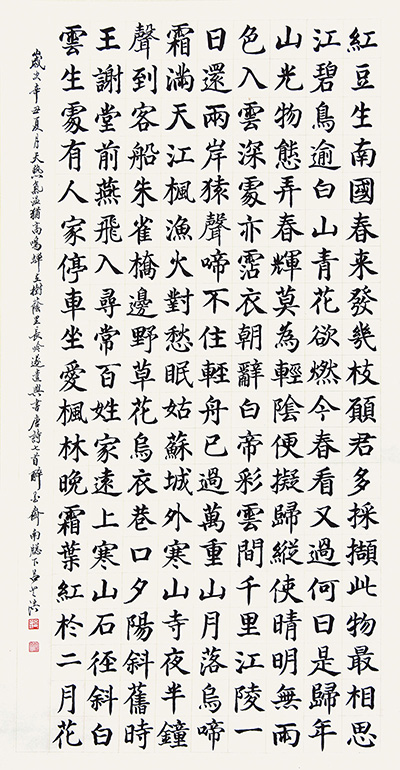 紅豆生南國春来發幾枝願君多採擷此物最相思
江碧鳥逾白山青花欲燃今春看又過何日是歸年
山光物態弄春輝莫為輕陰便擬歸縱使晴明無雨
色入雲深處亦霑衣朝辭白帝彩雲間千里江陵一
日還兩岸猿聲啼不住輕舟已過萬重山月落烏啼
霜滿天江楓漁火對愁眠姑蘇城外寒山寺夜半鐘
聲到客船朱雀橋邊野草花烏衣巷口夕陽斜舊時
王謝堂前燕飛入尋常百姓家遠上寒山石径斜白
雲生處有人家停車坐愛楓林晚霜葉紅於二月花
歲次辛丑夏月天熱氣溫猶高鳴蟬在樹蔭里長吟遂遣興書唐詩七首醉墨齋南牕下